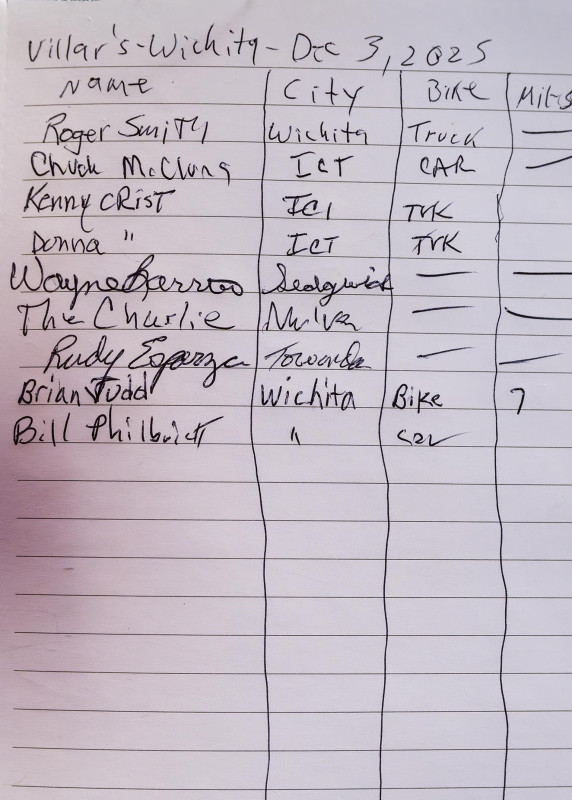 Villar's-Wichita - Dec 3, 2025
Name City Bike Miles
Roger Smith Wichita Truck —
Chuck McClung ICT CAR —
Kenny CRiST ICT TVK
Donna " ICT TVK
Wayne Sedgwick — —
The Charlie Mulva — —
Rudy Esparza Towanda — —
Brian Judd Wichita Bike 7
Bill Philbrick "